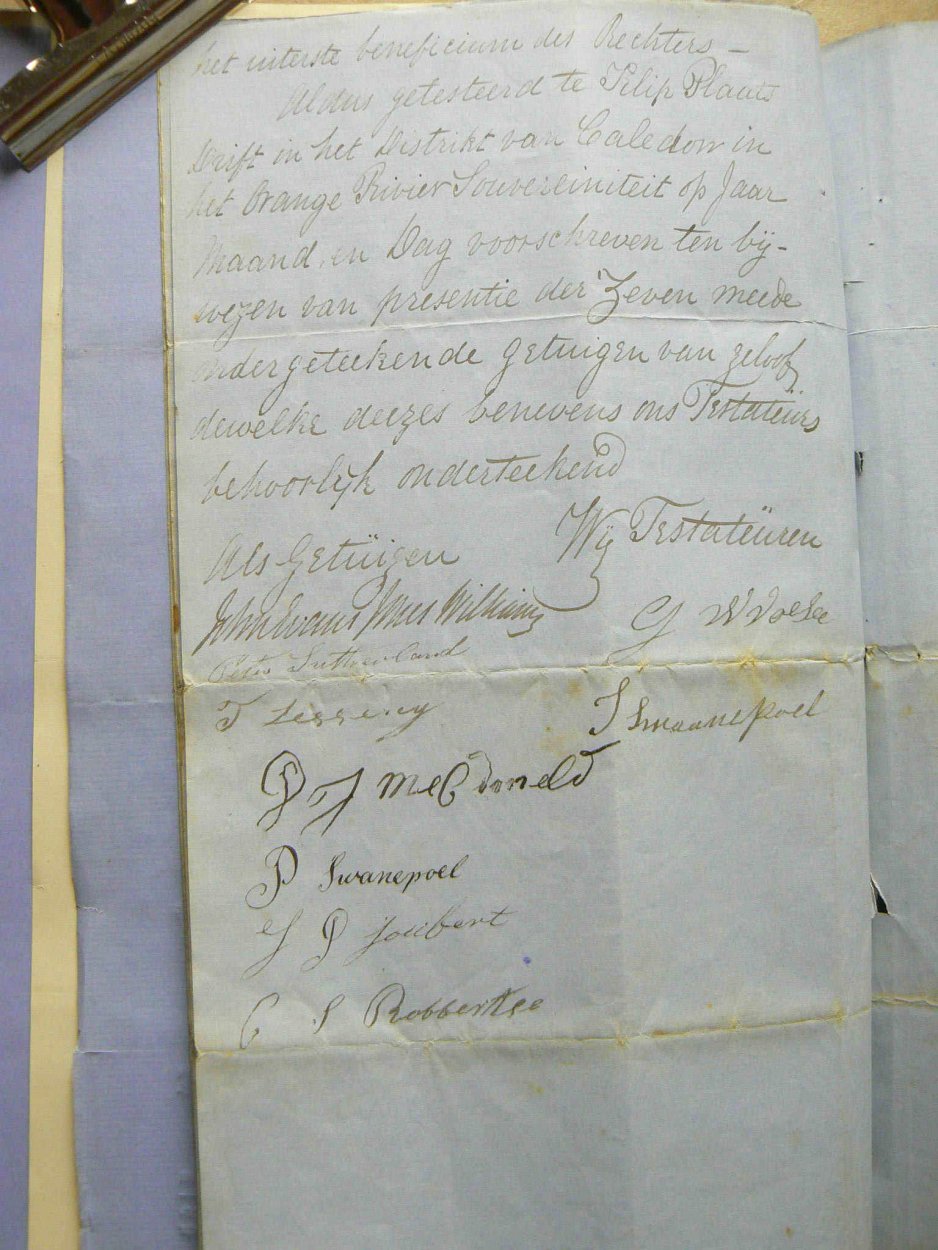 het uiterste beneficium des Rechters –
Aldus getesteerd te Filip Plaats
Drift in het Distrikt van Caledon in
het Orange Rivier Souvereiniteit op Jaar
Maand, en Dag voorschreven ten bij-
wezen van presentie der Zeven meede
ondergeteekende getuigen van geloof
dewelke deezes benevens ons Testateurs
behoorlijk onderteekend
Als Getüigen
Wij Testateüren
John Evans James Williams
Peter Sutherland
T
J Swaanepoel
P J McCdoneld
P Swanepoel
J P Joubert
C S Robbertse